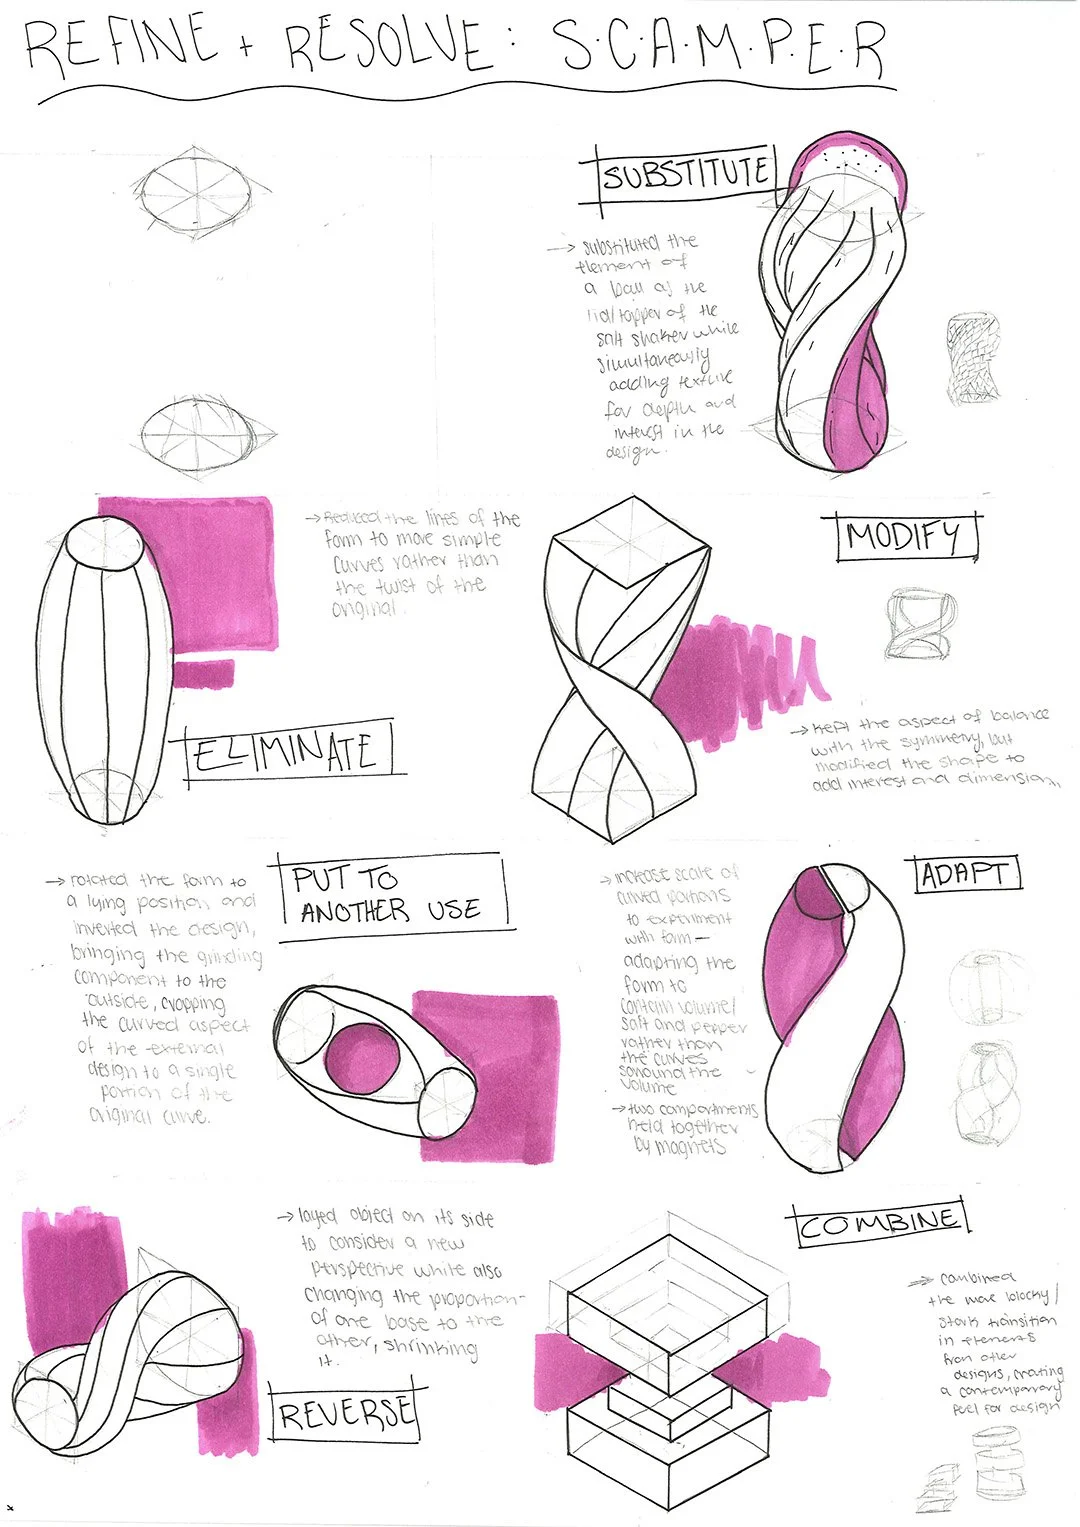 REFINE + RESOLVE: S.C.A.M.P.E.R
SUBSTITUTE
→ substituted the
element of
a ball as the
lid/topper of the
salt shaker while
simultaneously
adding texture
for depth and
interest in the
design.
→ Reduced the lines of the
form to more simple
curves rather than
the twist of the
original.
ELIMINATE
MODIFY
→ Kept the aspect of balance
with the symmetry, but
modified the shape to
add interest and dimension.
PUT TO
ANOTHER USE
→ rotated the form to
a lying position and
inverted the design,
bringing the grinding
component to the
outside, cropping
the curved aspect
of the external
design to a single
portion of the
original curve.
ADAPT
→ increase scale of
curved portions
to experiment
with form —
adapting the
form to
contain volume/
salt and pepper
rather than
the curves
soround the
volume
→ two compartments
held together
by magnets
→ layed object on its side
to consider a new
perspective while also
changing the proportion-
of one base to the
other, shrinking
it.
REVERSE
COMBINE
→ combined
the more blocky/
stark transition
in elements
from other
designs, creating
a contemporary
feel for design